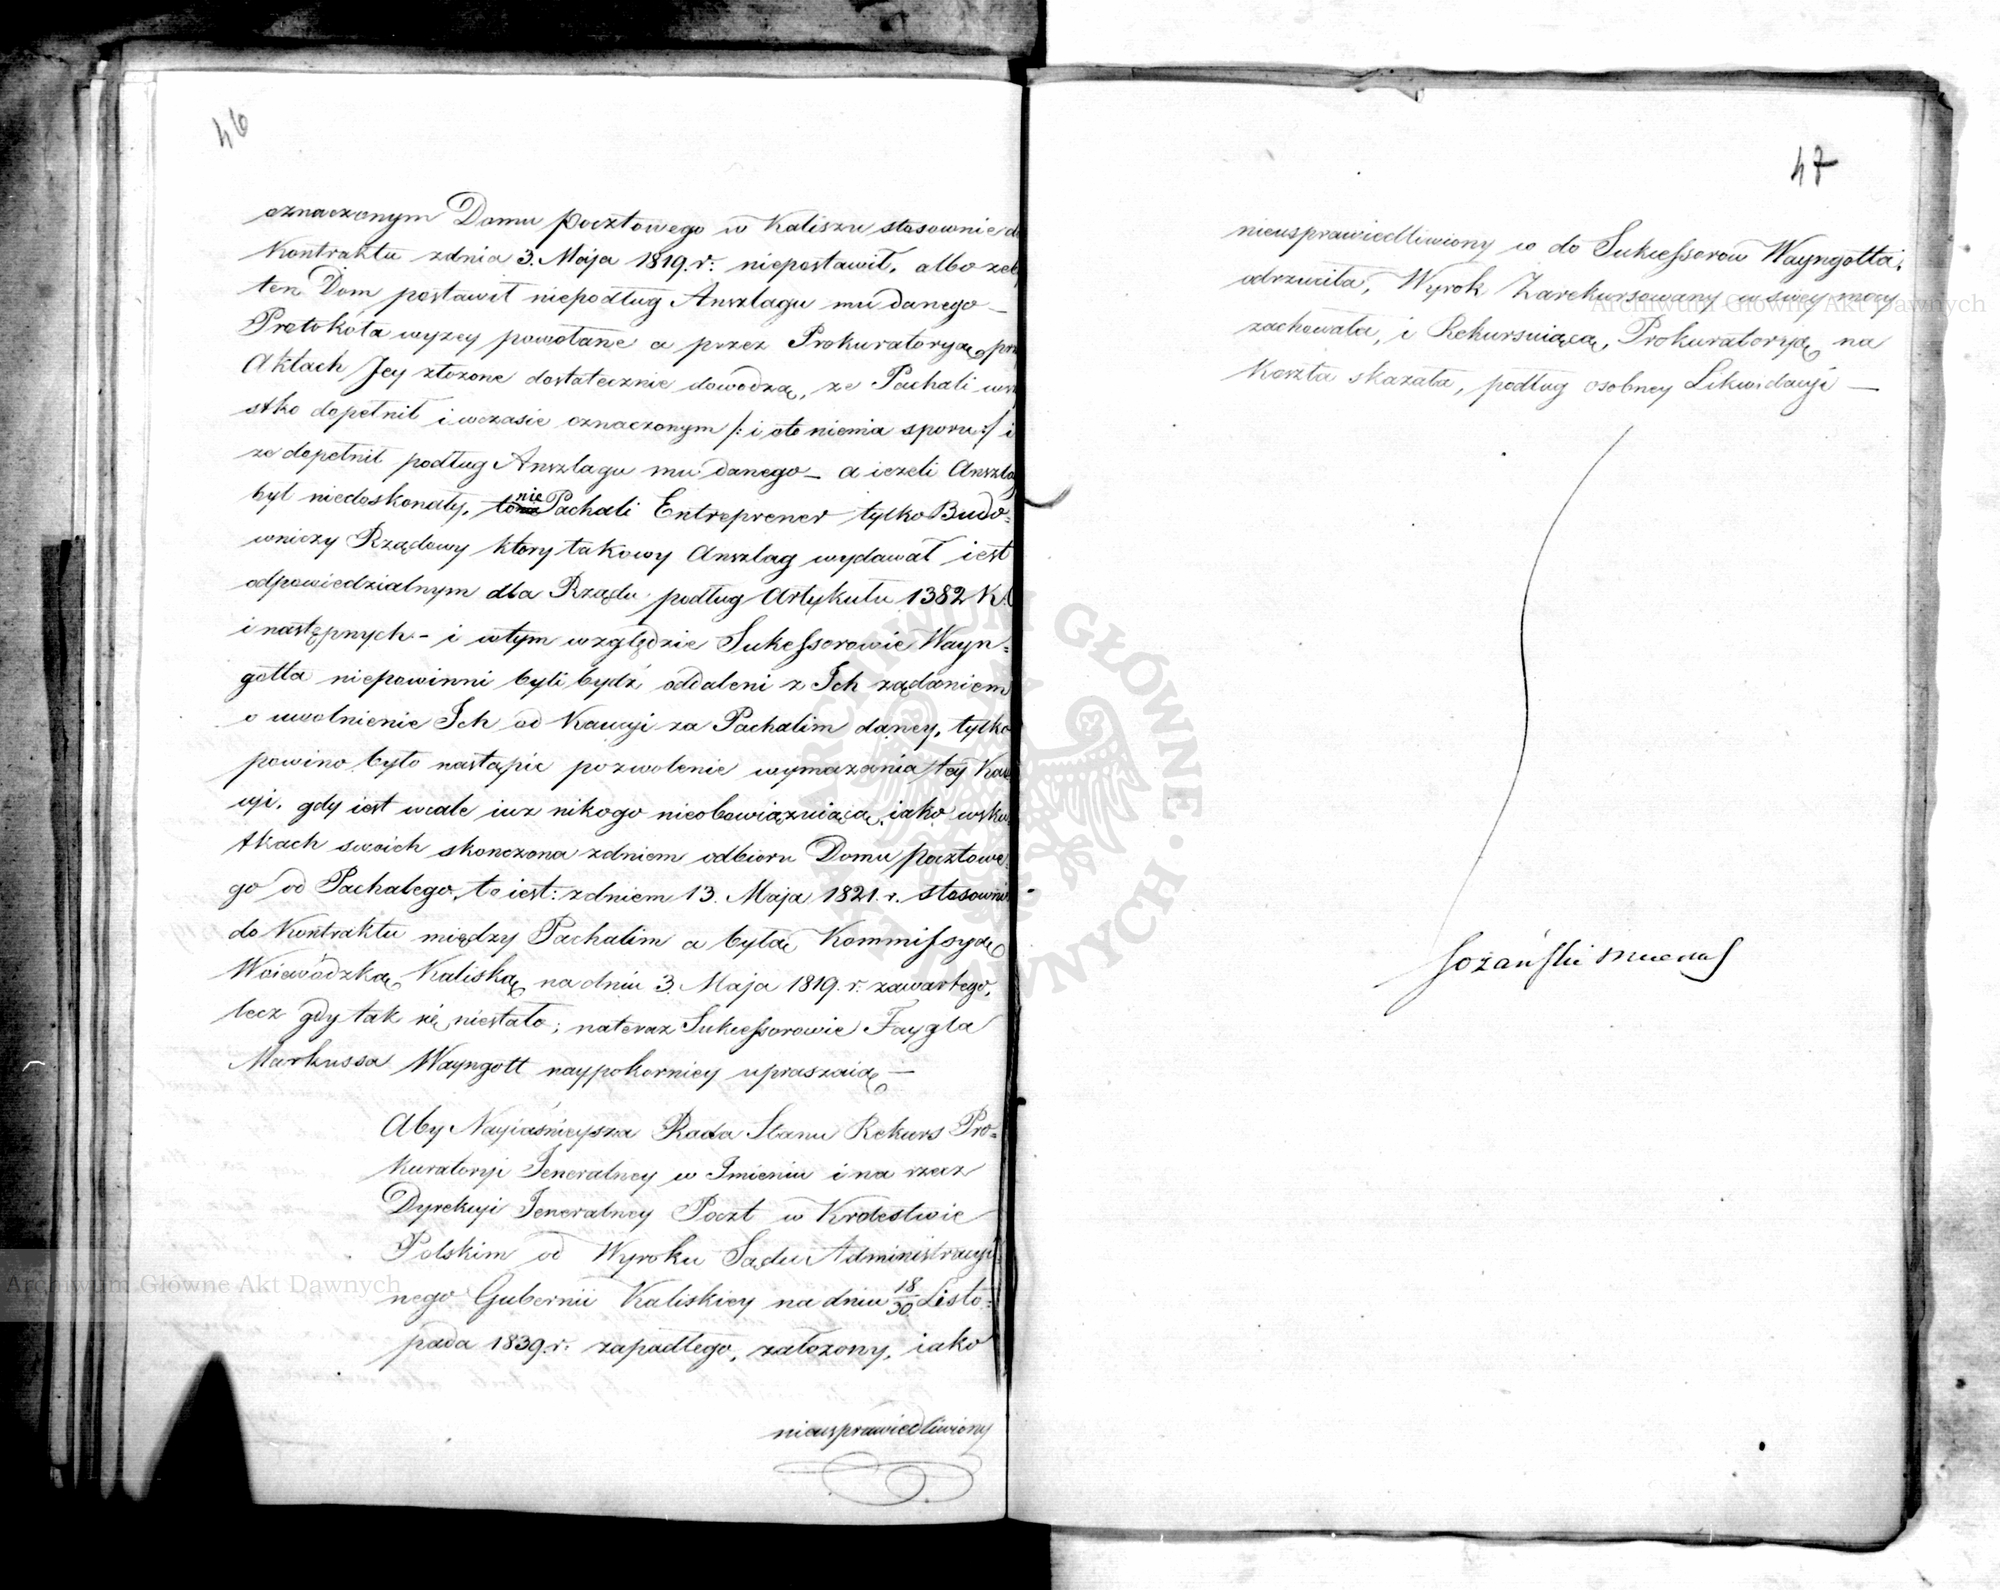 46
oznaczonym Domu pocztowego w Kaliszu stosownie do
Kontraktu zdnia 3. Maja 1819. r: niepostawił, albo zeby
ten Dom postawił niepodług Anszlagu mu danego —
Protokóła wyzey powołane a przez Prokuratoryą przy
Aktach Jey złozone dostatecznie dowodzą, ze Pachali wszy
stko dopełnił i wczasie oznaczonym /: i oto niema sporu :/ i
ze dopełnił podług Anszlagu mu danego — a iezeli Anszlag
był niedoskonały, to nie Pachali Entreprener tylko Budo=
wniczy Rządowy ktory takowy Anszlag wydawał iest
odpowiedzialnym dla Rządu podług Artykułu 1382 K.C
i następnych — i wtym względzie Sukcessorowie Wayn=
gotta niepowinni byli bydź oddaleni z Ich ządaniem
o uwolnienie Ich od Kaucyi za Pachalim daney, tylko
powino było nastąpic pozwolenie wymazania tey Kau
cyi, gdy iest wcale iuz nikogo nieobowiązuiącą, iako wsku
tkach swoich skonczona zdniem odbioru Domu pocztowe=
go od Pachalego, to iest: zdniem 13. Maja 1821. r. stosownie
do Kontraktu między Pachalim a byłą Kommissyą
Woiewódzką Kaliską na dniu 3. Maja 1819. r. zawartego,
lecz gdy tak się niestało; nateraz Sukcessorowie Faygla
Markussa Wayngott naypokorniey upraszaią —
Aby Nayiaśnieysza Rada Stanu Rekurs Pro=
kuratoryi Jeneralney w Imieniu i na rzecz
Dyrekcyi Jeneralney Poczt w Krolestwie
Polskim od Wyroku Sądu Administracyi
nego Gubernii Kaliskiey na dniu 18/30 Listo=
pada 1839. r. zapadłego, załozony, iako
nieusprawiedliwiony
47
nieusprawiedliwiony w do Sukcessorow Wayngotta,
odrzuciła, Wyrok Zarekursowany w swey mocy
zachowała, i Rekursuiącą Prokuratoryą na
Koszta skazała, podług osobney Likwidacyi —
Archiwum Główne Akt Dawnych
ARCHIWUM GŁÓWNE AKT DAWNYCH
Archiwum Główne Akt Dawnych